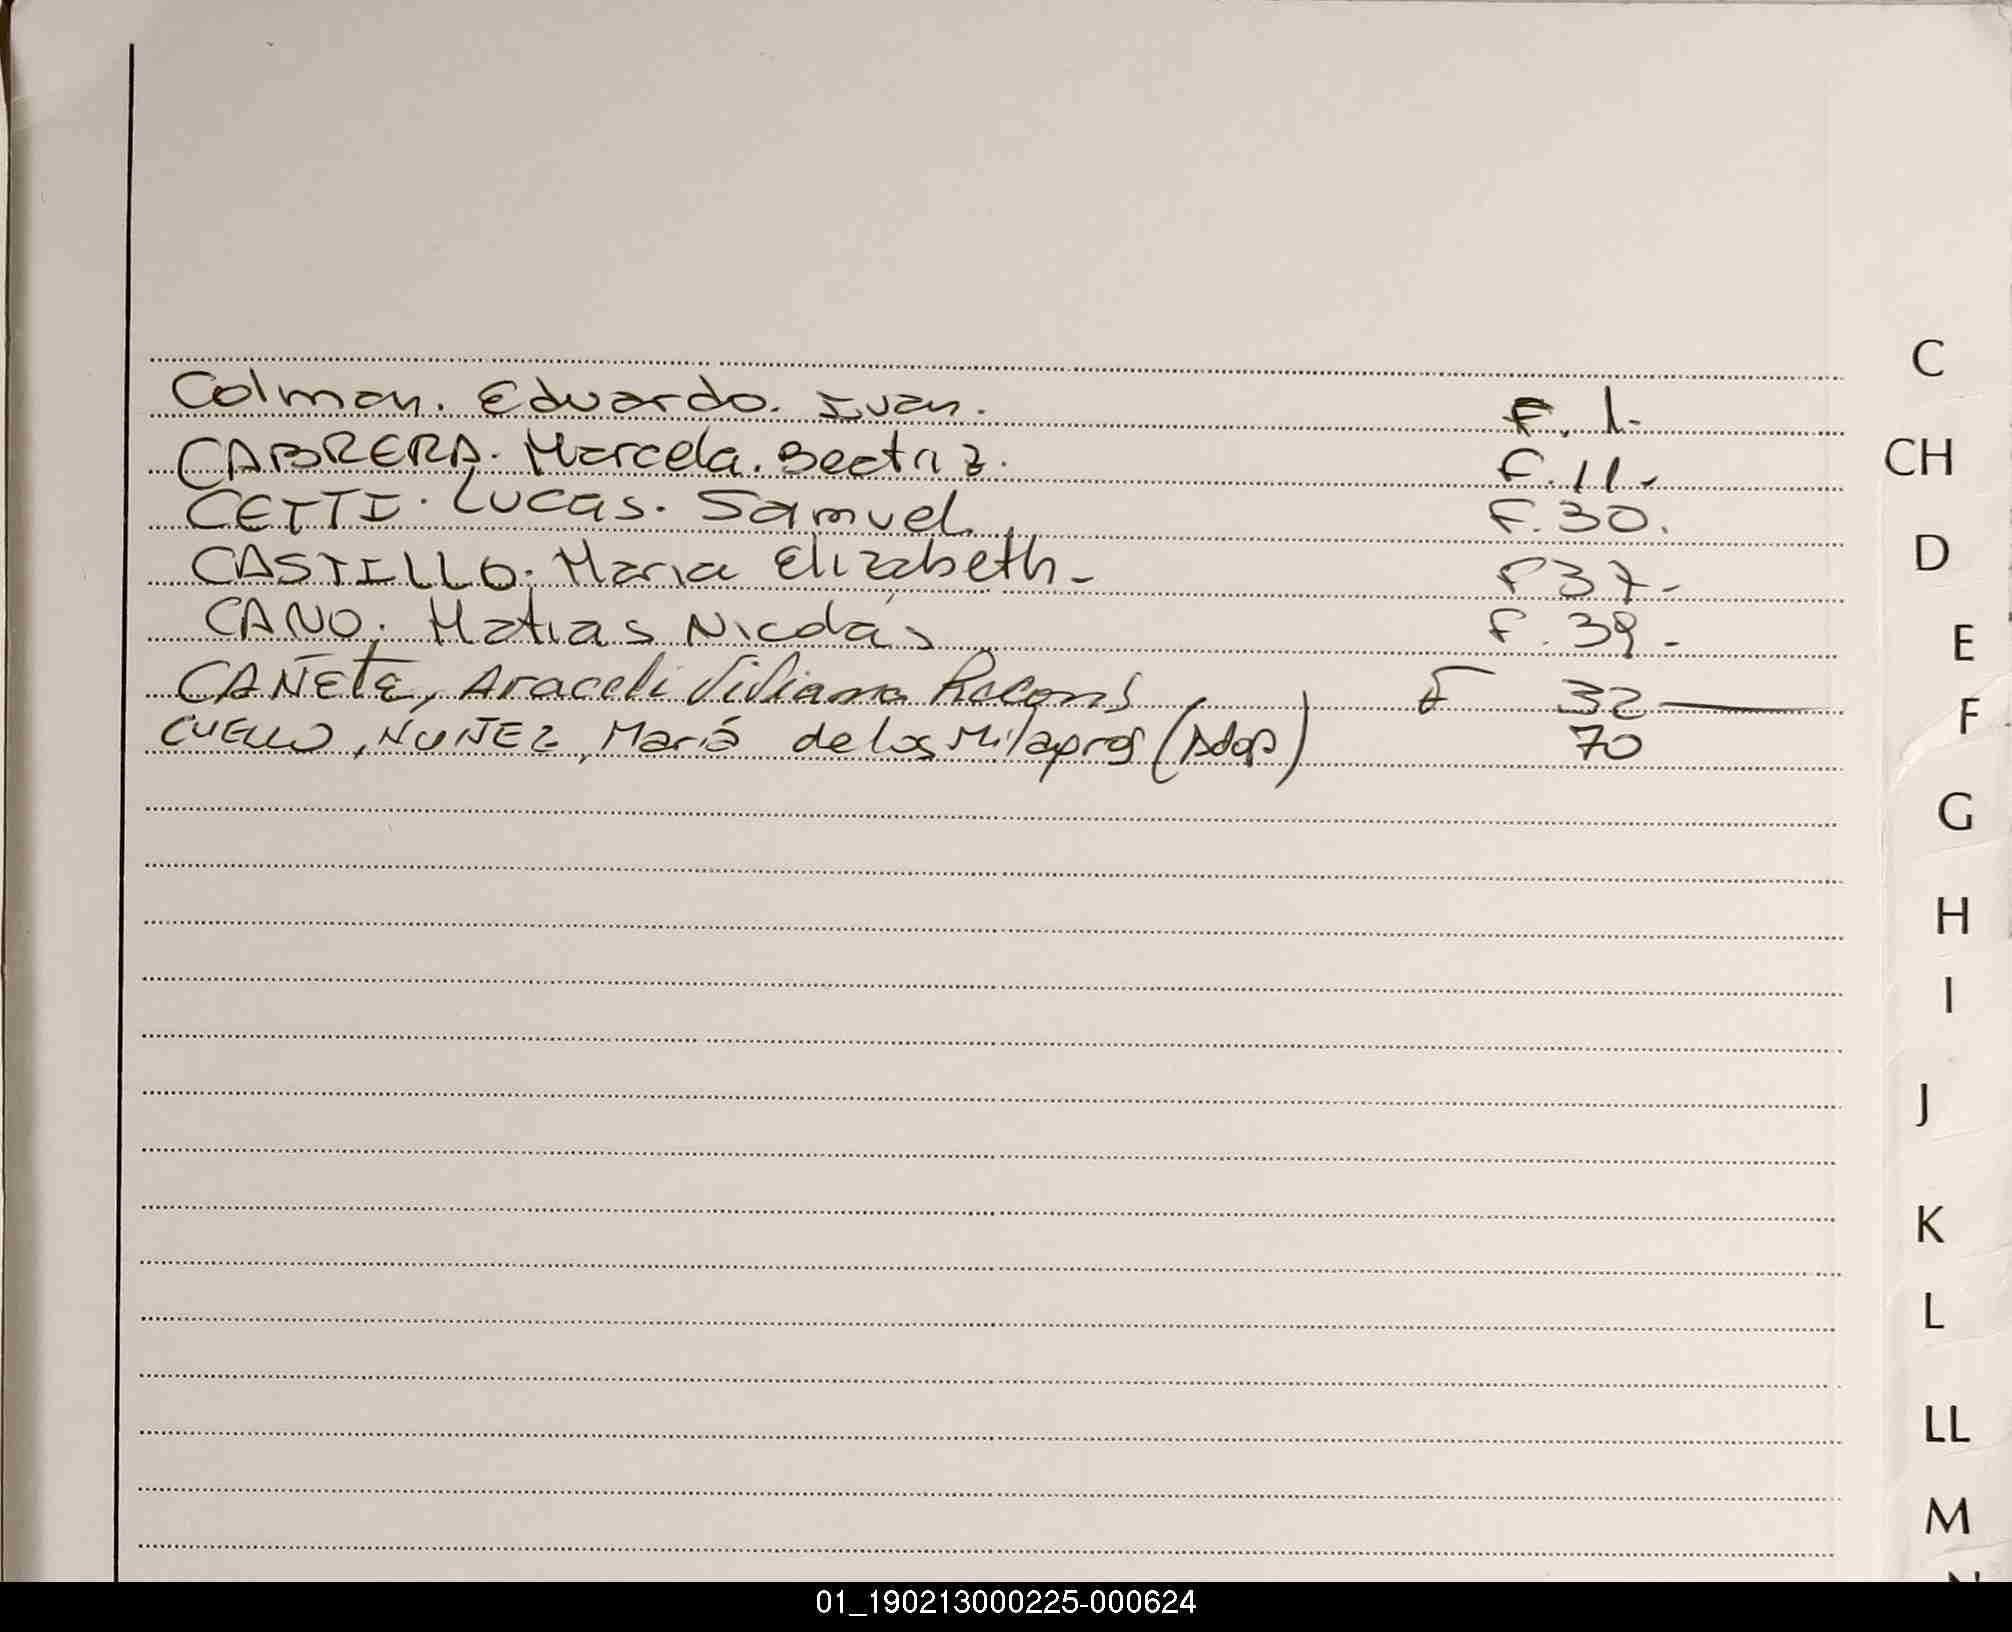 Colman. Eduardo. Ivan. F. 1-
CABRERA. Marcela. Beatriz. F. 11.-
CETTI. Lucas. Samuel. F. 30.
CASTILLO. Maria Elizabeth- F 37-
CANO. Matias Nicolás F. 39-
CAÑETE, Araceli Viviana Recons F 32
CUELLO, NUÑEZ, Mariá de los Milagros (Adop) 70
C
CH
D
E
F
G
H
I
J
K
L
LL
M
01_190213000225-000624